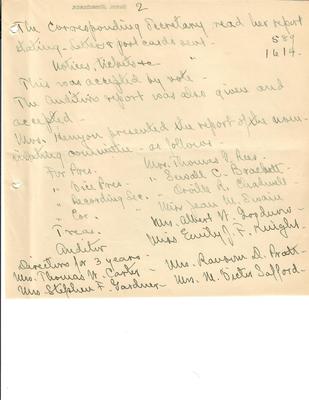 2
The Corresponding Secretary read her report
stating - letters & post cards sent - 589
Notices, Tickets &c " 1614.
This was accepted by vote -
The Auditor's report was also given and
accepted -
Mrs. presented the report of the nom-
inating committee - as follows -
For Pres. Mrs. Thomas
" Vice Pres. - " C. Brackett -
" Recording Sec. - " R. Chadwell -
" Cor. " - Miss Jean M.
Treas. Mrs. Albert
Auditor Miss Emily J. F. Knight.
Directors for 3 years -
Mrs. Thomas W. Carter - Mrs. Ransom D. Pratt -
Mrs. Stephen F. Gardner - Mrs. M. Victor Safford -